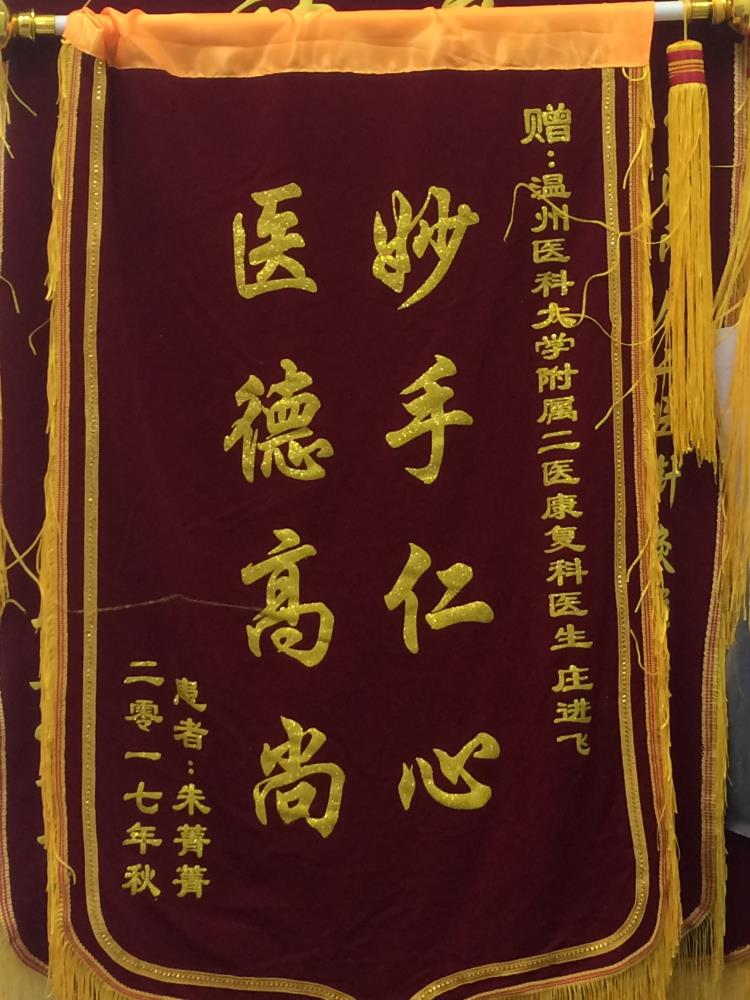 赠：温州医科大学附属二医康复科医生 庄进飞
妙手仁心
医德高尚
患者：朱菁菁
二零一七年秋